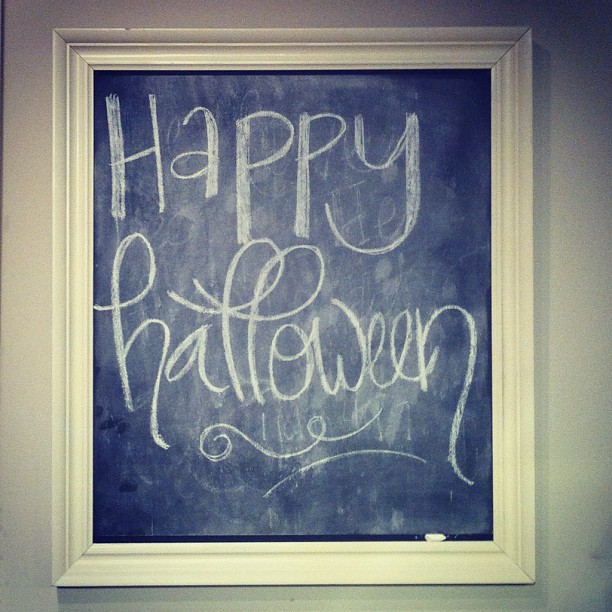 Happy
halloween